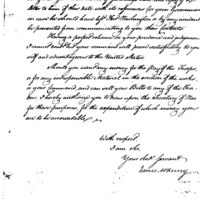 letter to him of their date with its references (for your Government
in case he should have left Fort Washington or by any accident
be prevented from communicating to you their contents
Having a perfect reliance in your prudence and judgment
I cannot doubt but your command will prove satisfactory to your
self and advantageous to the United States
Should you want any money for the pay of the Troops,
or for any indispensable Material in the execution of the works
in your Command, and can sell your Bills to any of the
I hereby authorize you to draw upon the Secretary of War
for these purposes, for the expenditure of which money you
are to be accountable.
With respect
I am Sir,
Your Obt servant
James McHenry